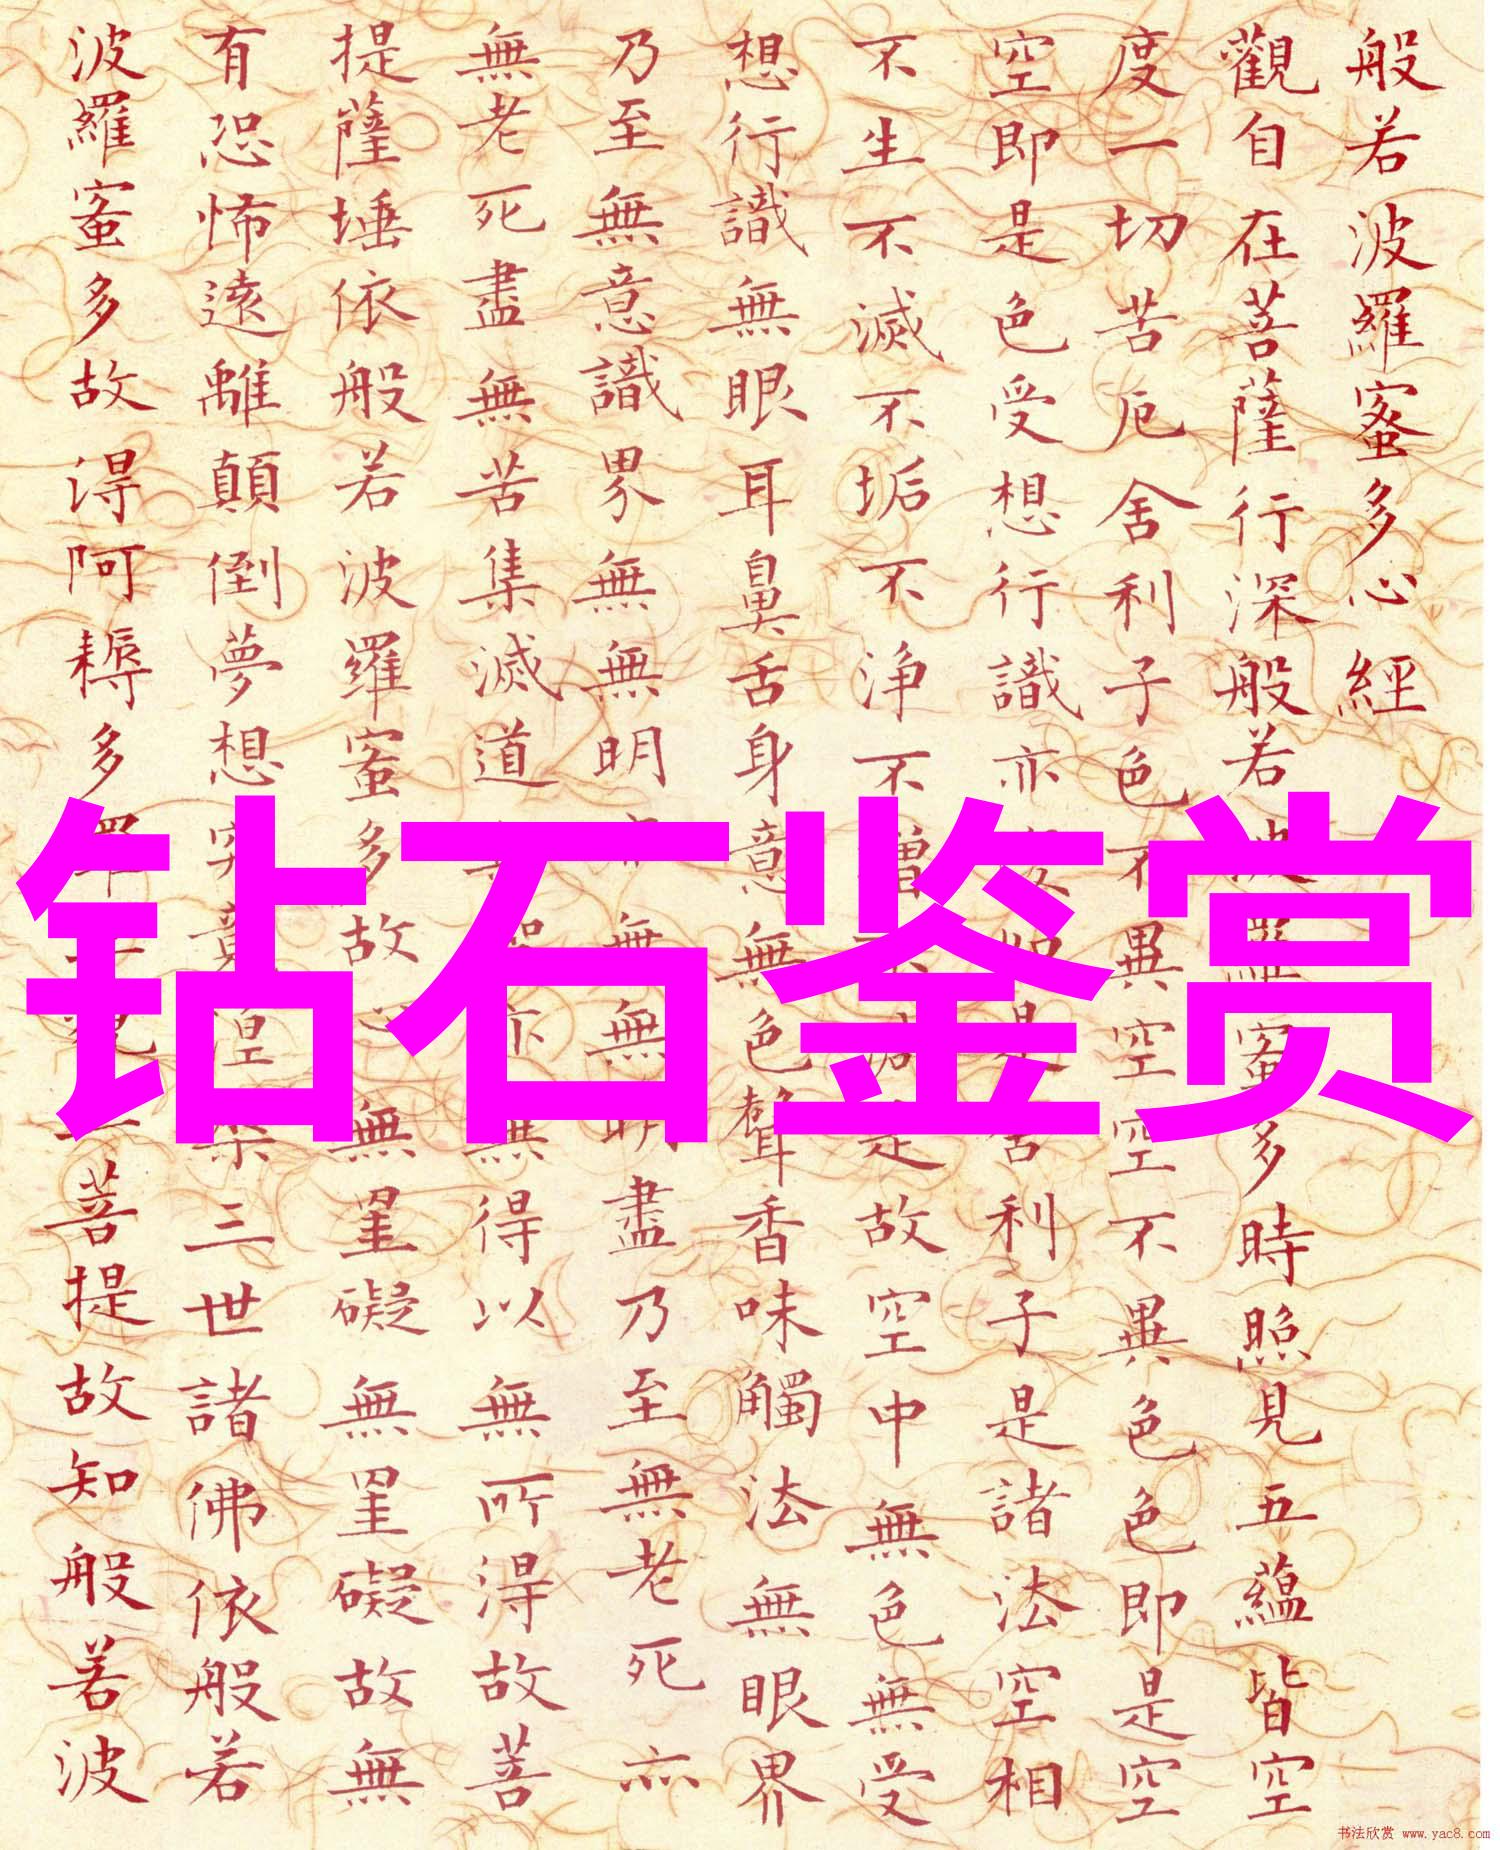 般若波羅蜜多心經
觀自在菩薩行深般若波羅蜜多時照見五蘊皆空
度一切苦厄舍利子色不異空空不異色色即是空
空即是色受想行識亦復如是舍利子是諸法空相
不生不滅不垢不浄不增不減是故空中無色無受
想行識無眼耳鼻舌身意無色聲香味觸法無眼界
乃至無意識界無無明亦無無明盡乃至無老死亦
無老死盡無苦集滅道無智亦無得以無所得故菩
提薩埵依般若波羅蜜多故心無罣礙無罣礙故無
有恐怖遠離顛倒夢想究竟涅槃三世諸佛依般若
波羅蜜多故得阿耨多羅三藐三菩提故知般若波
钻石鉴赏
书法欣赏 www.yac8.com